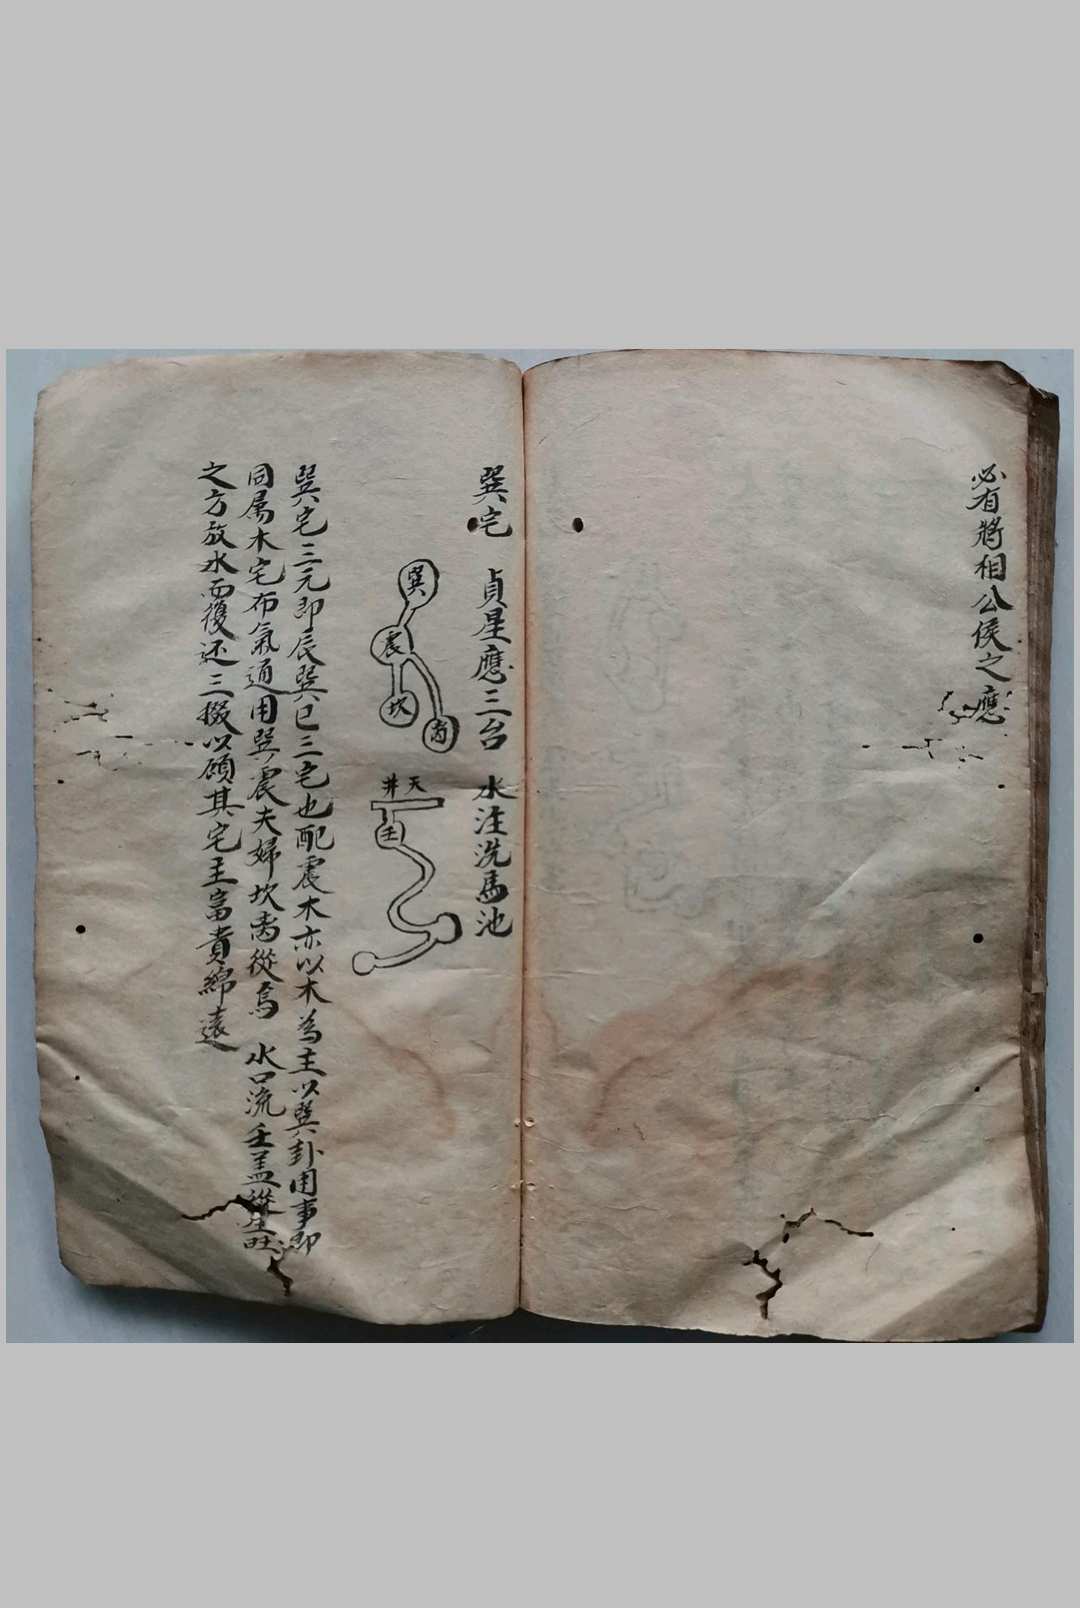 必有將相公侯之應
巽宅 貞星應三台 水注洗馬池
巽
震
坎
离
天井
壬
巽宅三元即辰巽巳三宅也配震木亦以木為主以巽卦用事即
同属木宅布氣通用巽震夫婦坎离從焉 水口流壬盖從生旺
之方放水而復还三掇以顧其宅主富貴綿遠